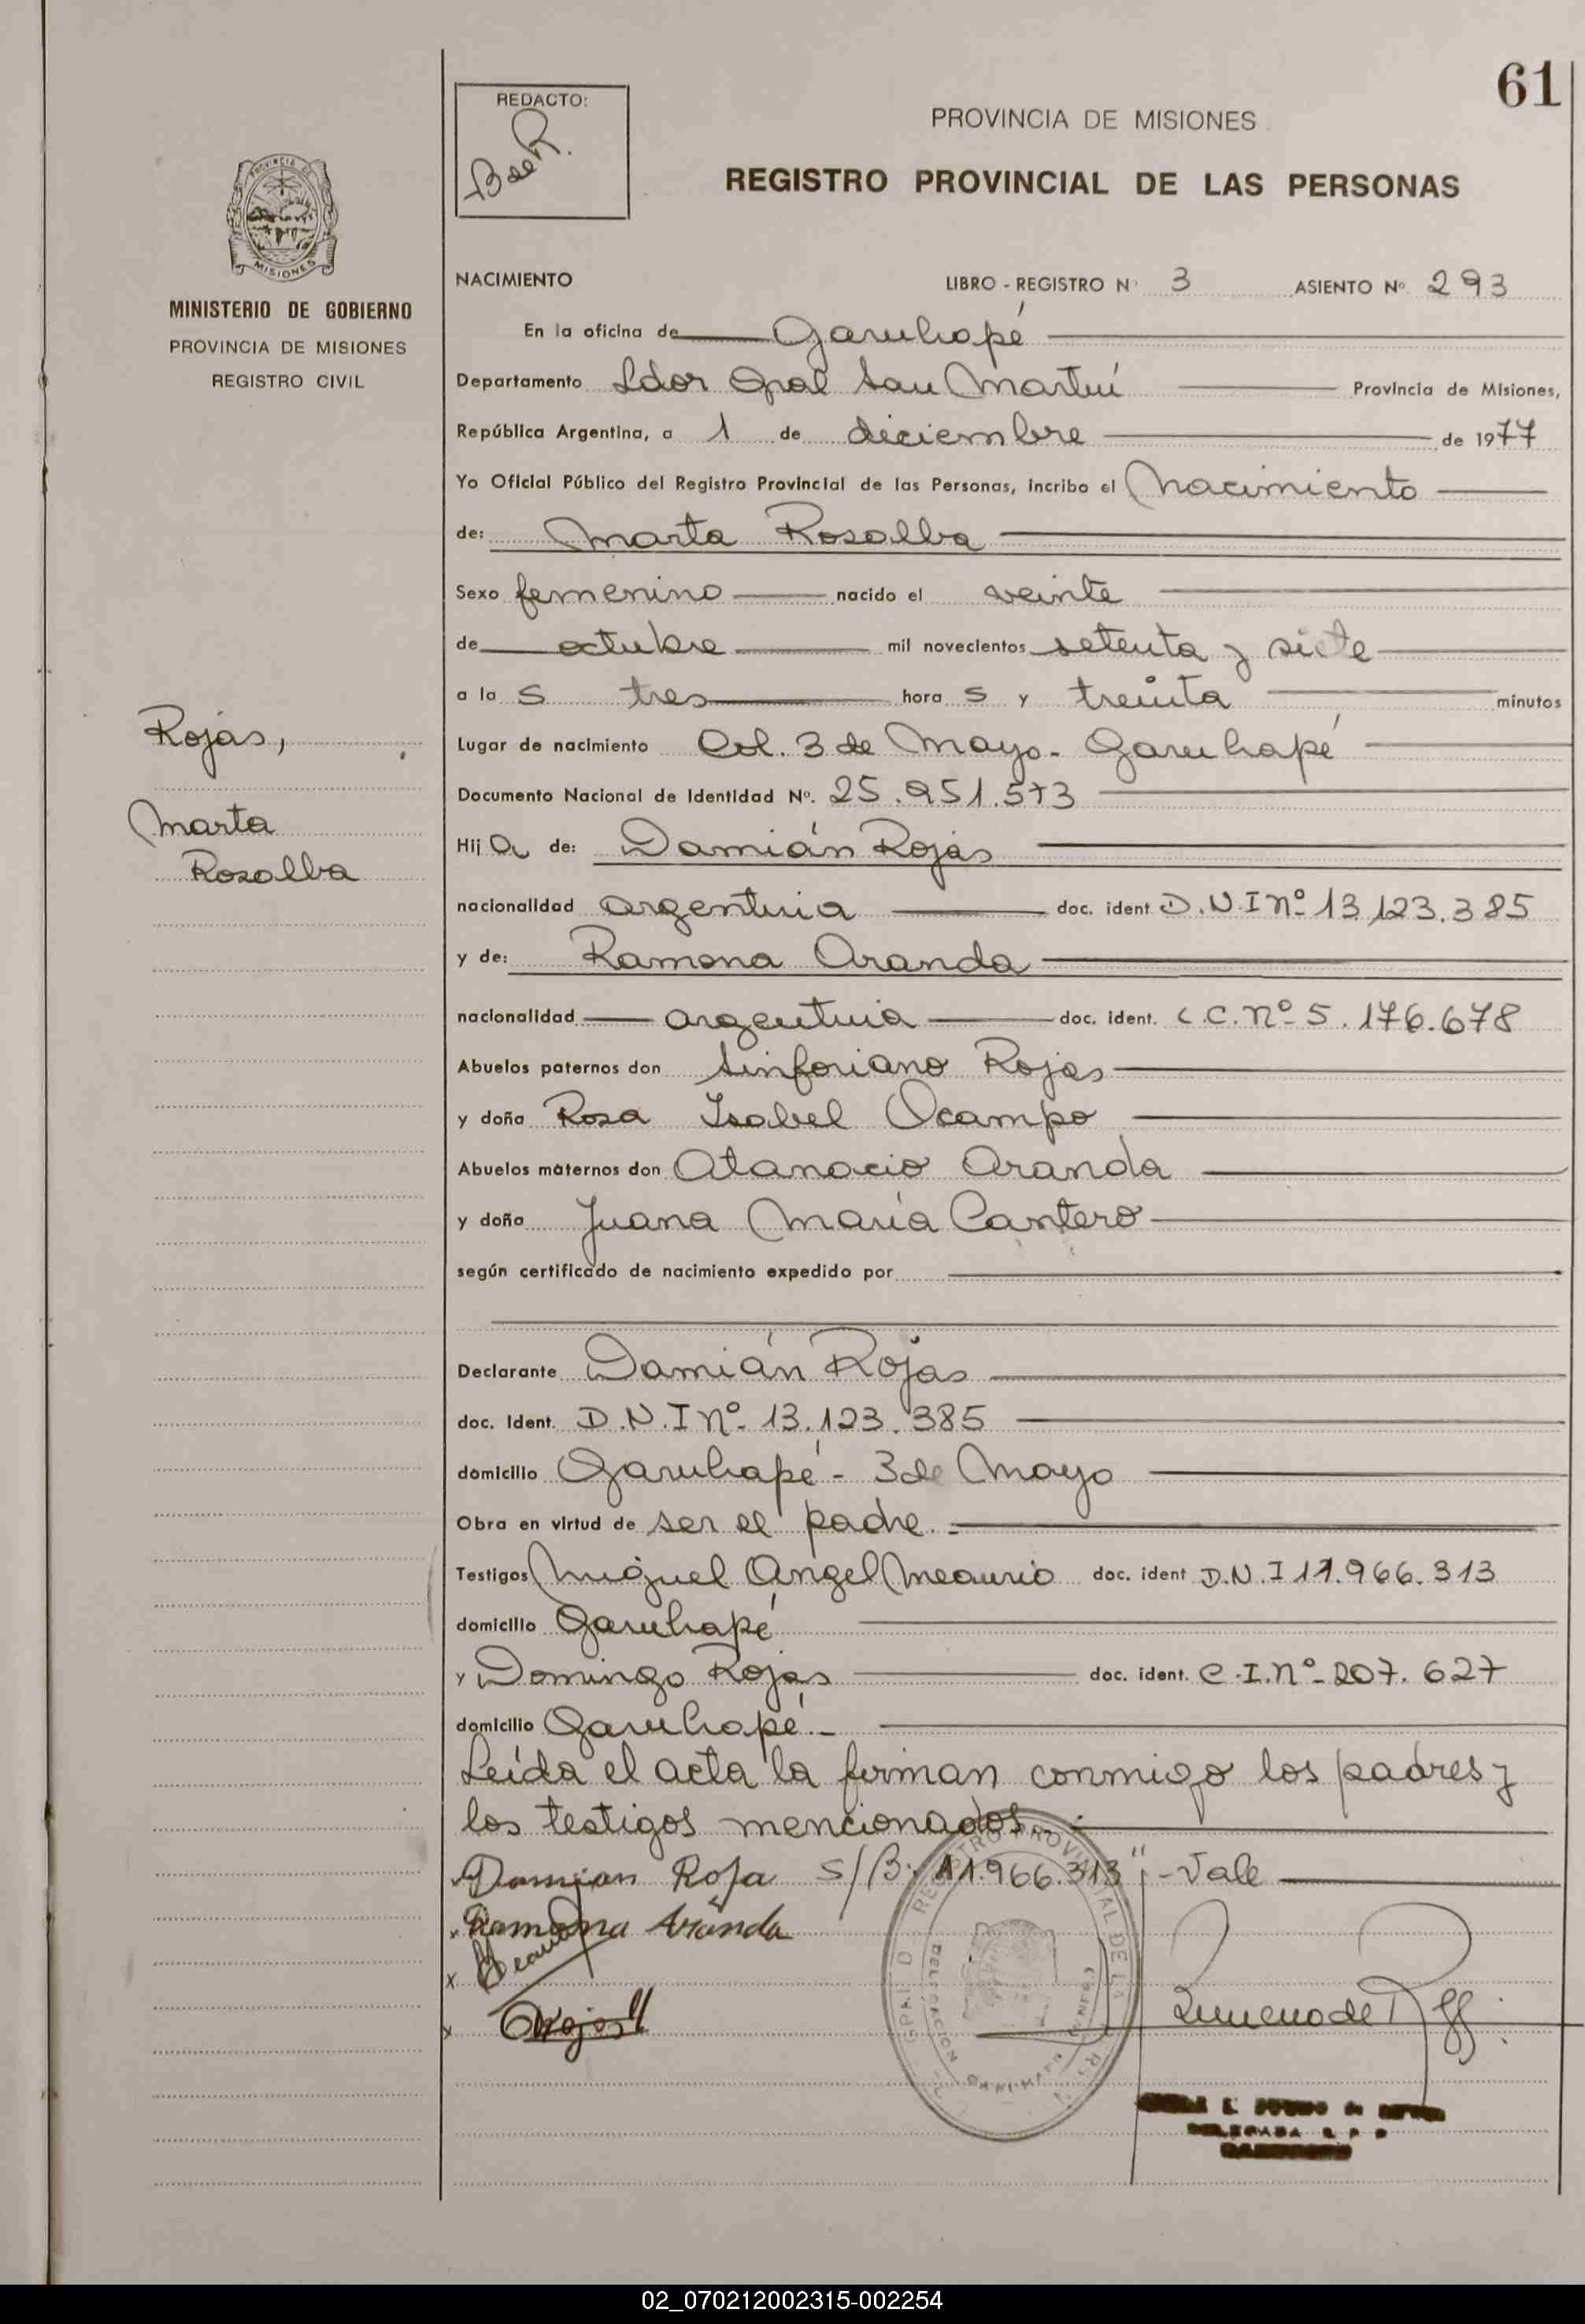 61
REDACTO:
B de R.
PROVINCIA DE MISIONES
REGISTRO PROVINCIAL DE LAS PERSONAS
PROVINCIA DE
MISIONES
MINISTERIO DE GOBIERNO
PROVINCIA DE MISIONES
REGISTRO CIVIL
Rojas,
Marta
Rosalba
NACIMIENTO LIBRO - REGISTRO Nº 3 ASIENTO Nº 293
En la oficina de Garuhapé
Departamento Ldor Gral San Martín Provincia de Misiones,
República Argentina, a 1 de diciembre de 1977
Yo Oficial Público del Registro Provincial de las Personas, incribo el Nacimiento
de: Marta Rosalba
Sexo femenino nacido el veinte
de octubre mil novecientos setenta y siete
a la s tres hora s y treinta minutos
Lugar de nacimiento Col. 3 de Mayo - Garuhapé
Documento Nacional de Identidad Nº. 25.951.573
Hij a de: Damián Rojas
nacionalidad argentina doc. ident D.N.I nº 13.123.385
y de: Ramona Aranda
nacionalidad argentina doc. ident. L.C. nº 5.176.678
Abuelos paternos don Sinforiano Rojas
y doña Rosa Isabel Ocampo
Abuelos maternos don Atanacio Aranda
y doña Juana María Cantero
según certificado de nacimiento expedido por
Declarante Damián Rojas
doc. Ident. D.N.I nº 13.123.385
domicilio Garuhapé - 3 de Mayo
Obra en virtud de ser el padre.-
Testigos Miguel Angel Meaurio doc. ident D.N.I 11.966.313
domicilio Garuhapé
y Domingo Rojas doc. ident. C.I. nº 207.627
domicilio Garuhapé.-
Leída el acta la firman conmigo los padres y
los testigos mencionados.-
Damian Roja S/B: "11.966.313" - Vale
x Ramona Aranda
x Meaurio
x Rojas
REGISTRO PROVINCIAL DE LAS
DELEGACION GARUHAPE
02_070212002315-002254